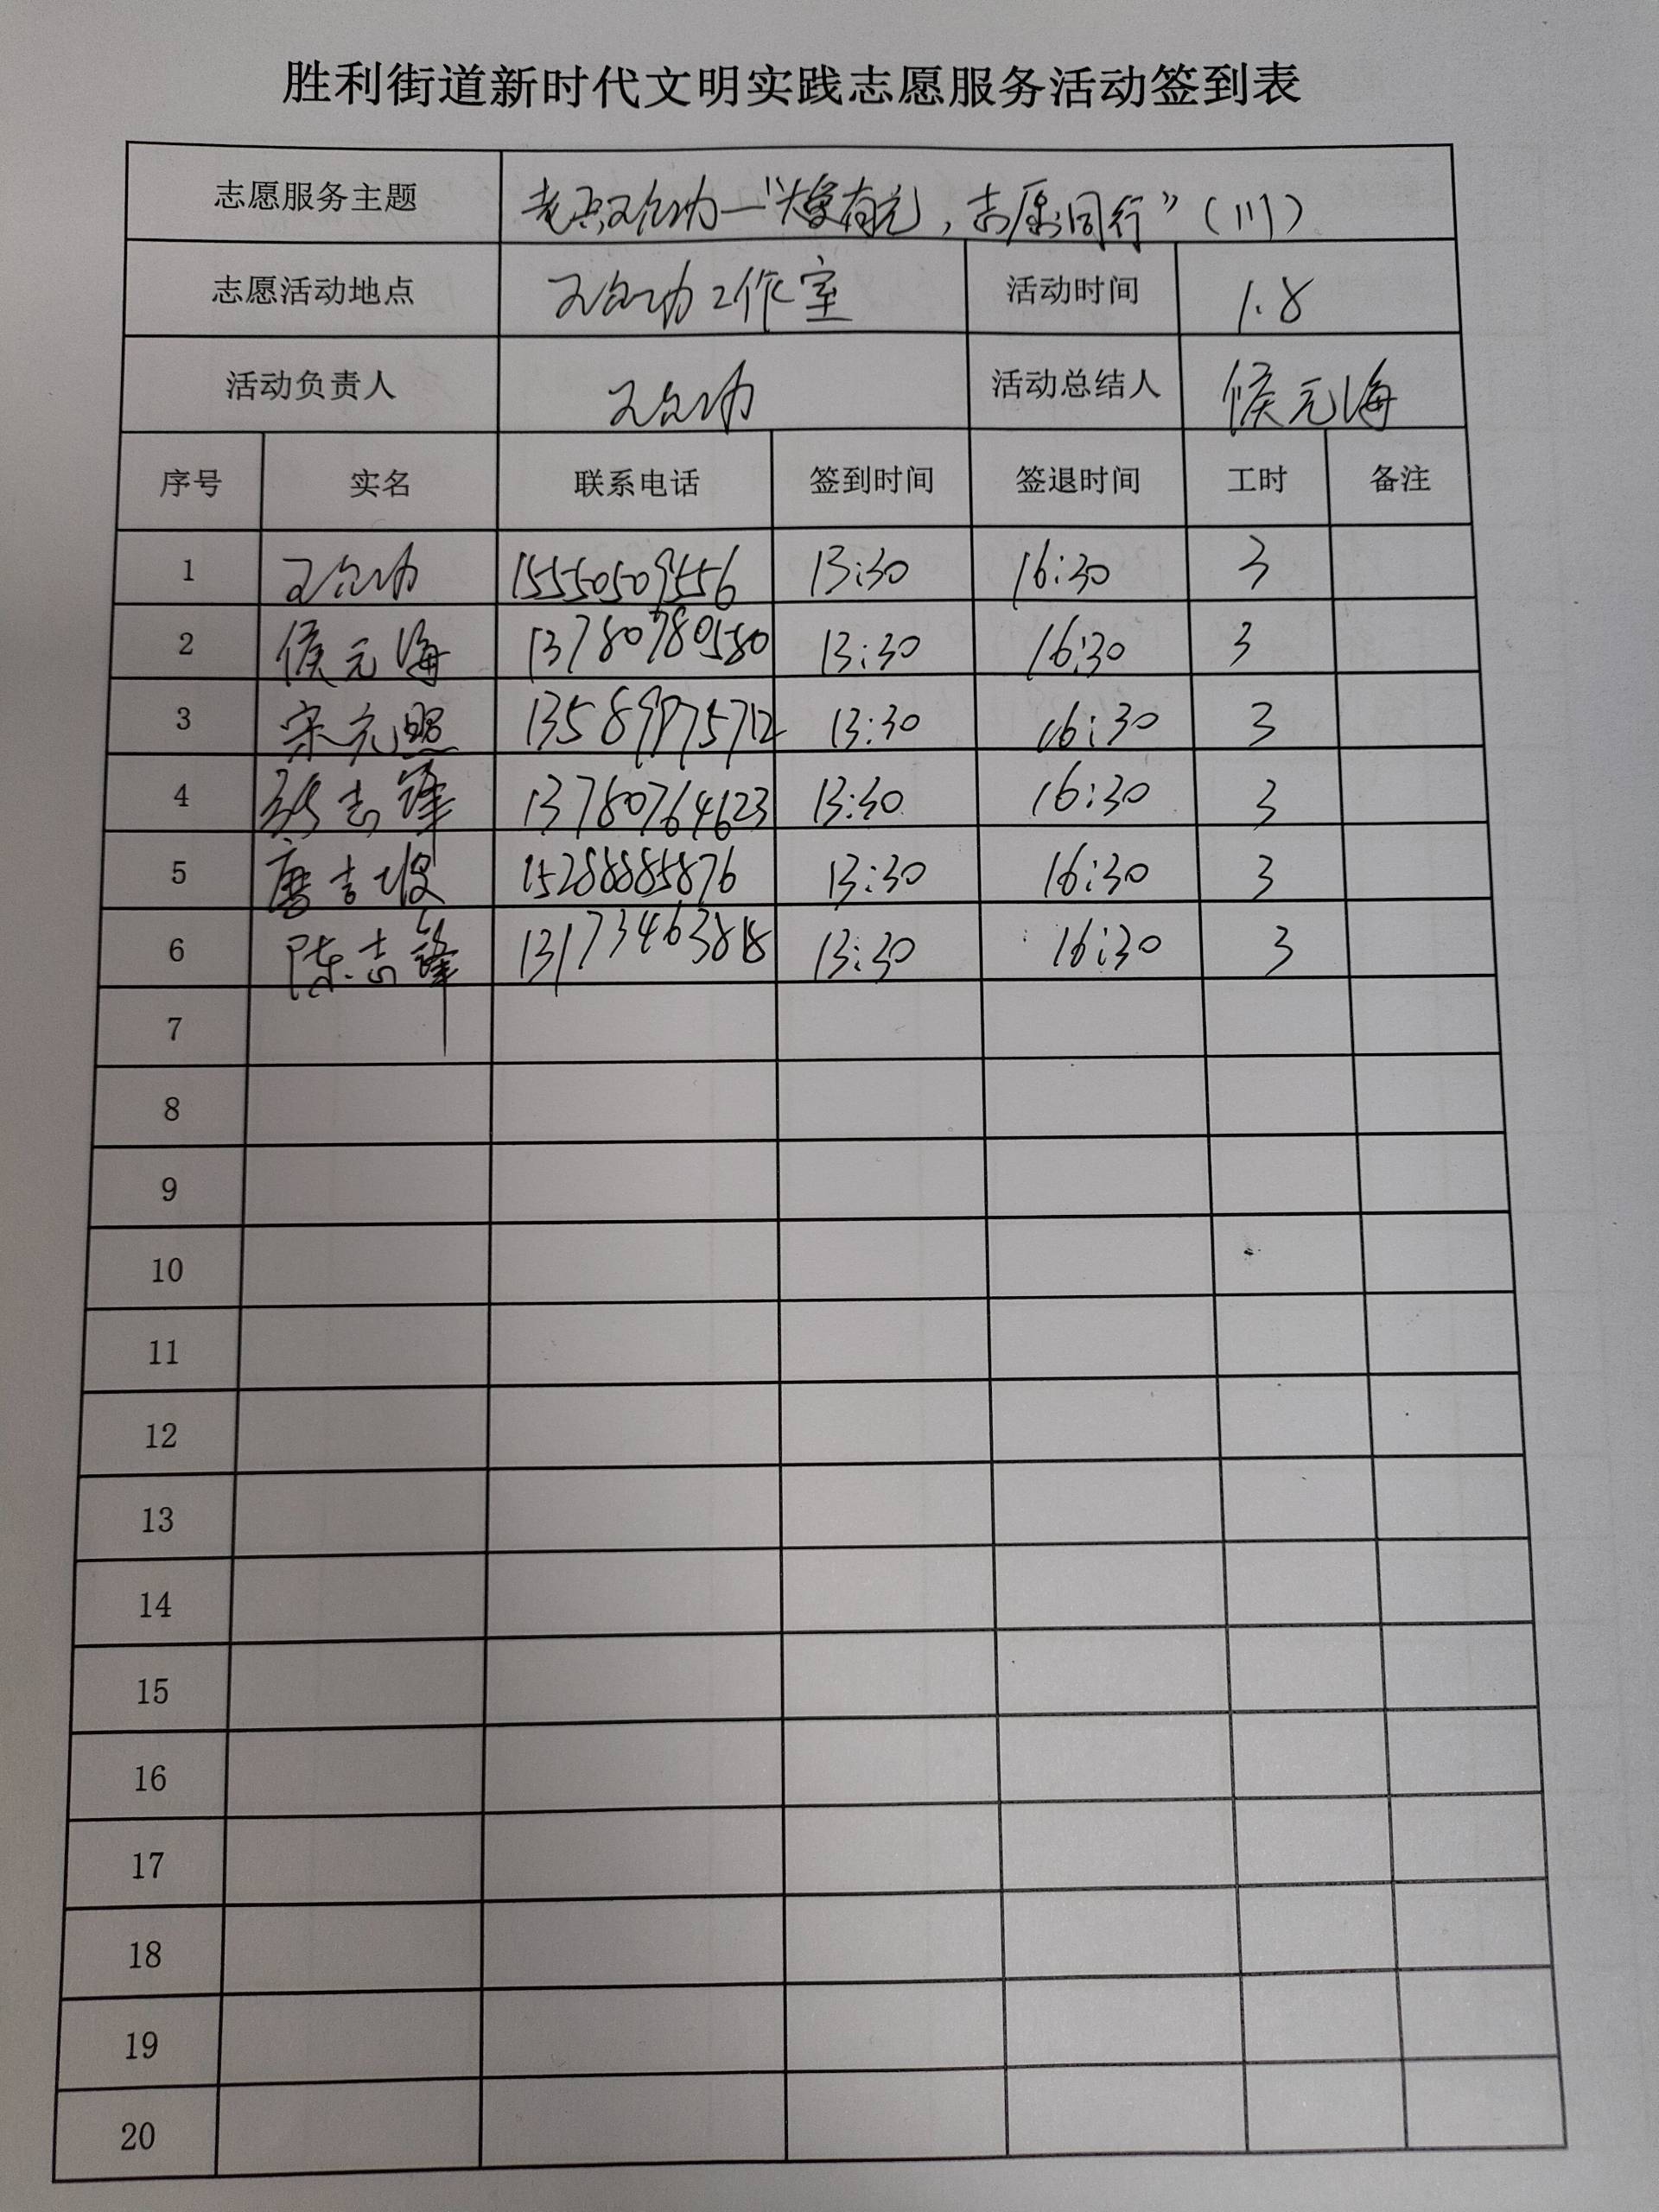 胜利街道新时代文明实践志愿服务活动签到表
志愿服务主题 老兵王合功—“大爱有光，志愿同行”（111）
志愿活动地点 王合功工作室 活动时间 1.8
活动负责人 王合功 活动总结人 侯元海
序号 实名 联系电话 签到时间 签退时间 工时 备注
1 王合功 15550509556 13:30 16:30 3
2 侯元海 13780780580 13:30 16:30 3
3 宋元照 13589975712 13:30 16:30 3
4 志锋 13780764623 13:30 16:30 3
5 唐吉 15288885876 13:30 16:30 3
6 陈志锋 13173463818 13:30 16:30 3
7
8
9
10
11
12
13
14
15
16
17
18
19
20